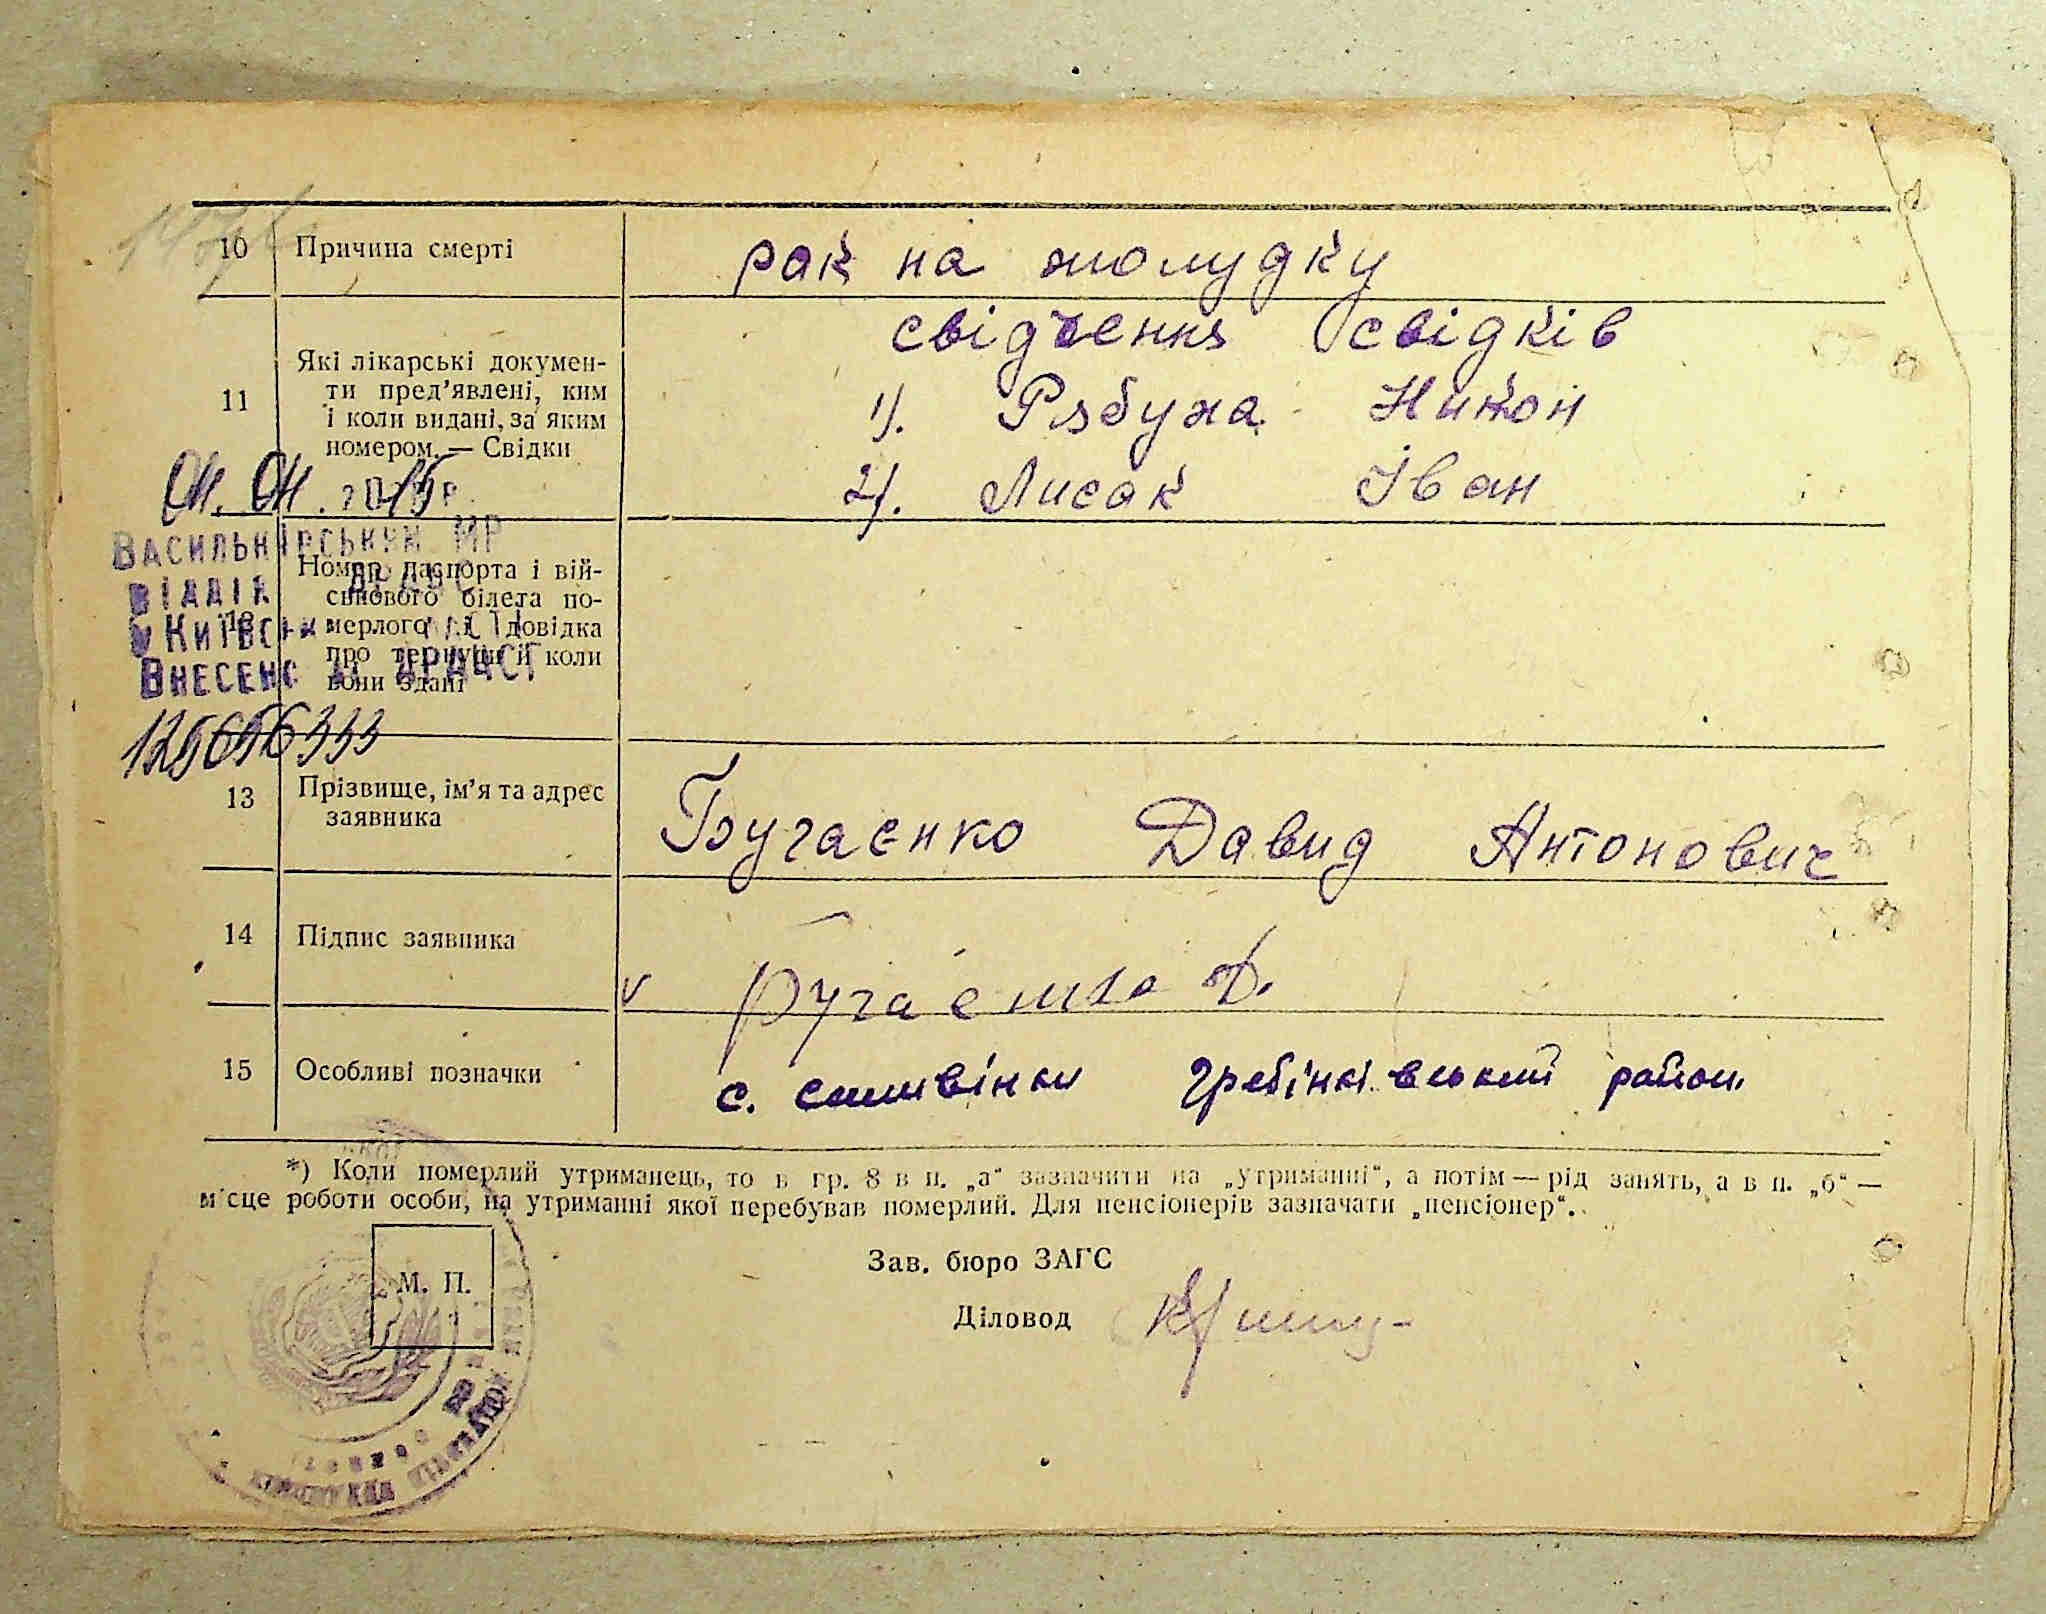 10 Причина смерті рак на жолудку
свідчення свідків
11 Які лікарські докумен-
ти пред’явлені, ким
і коли видані, за яким
номером. — Свідки
1). Рябуха Никон
2). Лисак Іван
Васильківський МР
відділ ДРАЦС
Внесено до ДРАЦСГ
125656333
12 Номер паспорта і вій-
ськового білета по-
мерлого і довідка
про те, куди й коли
вони здані
13 Прізвище, ім’я та адрес
заявника
Бугаєнко Давид Антонович
14 Підпис заявника
v Бугаенко Д.
15 Особливі позначки
с. Саливінки Гребінківський район
*) Коли померлий утриманець, то в гр. 8 в п. „а“ зазначити на „утриманні“, а потім — рід занять, а в п. „б“ —
місце роботи особи, на утриманні якої перебував померлий. Для пенсіонерів зазначати „пенсіонер“.
М. П.
Зав. бюро ЗАГС
Діловод